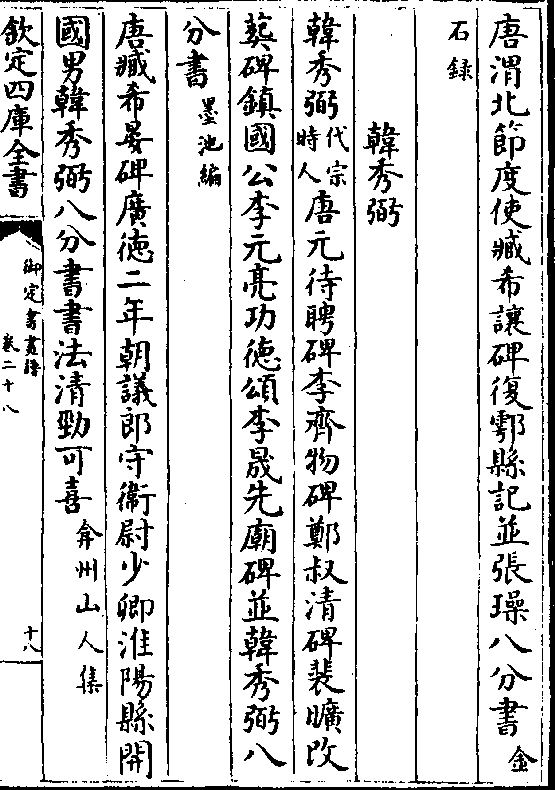 唐渭北節度使臧希讓碑復鄠縣記並張璪八分書金
石錄
韓秀弼
韓秀弼代宗時人唐元待聘碑李齊物碑鄭叔清碑裴曠改
葬碑鎮國公李元亮功德頌李晟先廟碑並韓秀弼八
分書墨池編
唐臧希晏碑廣德二年朝議郎守衛尉少卿淮陽縣開
國男韓秀弼八分書書法清勁可喜弇州山人集
欽定四庫全書
御定書畫譜
卷二十八
十八